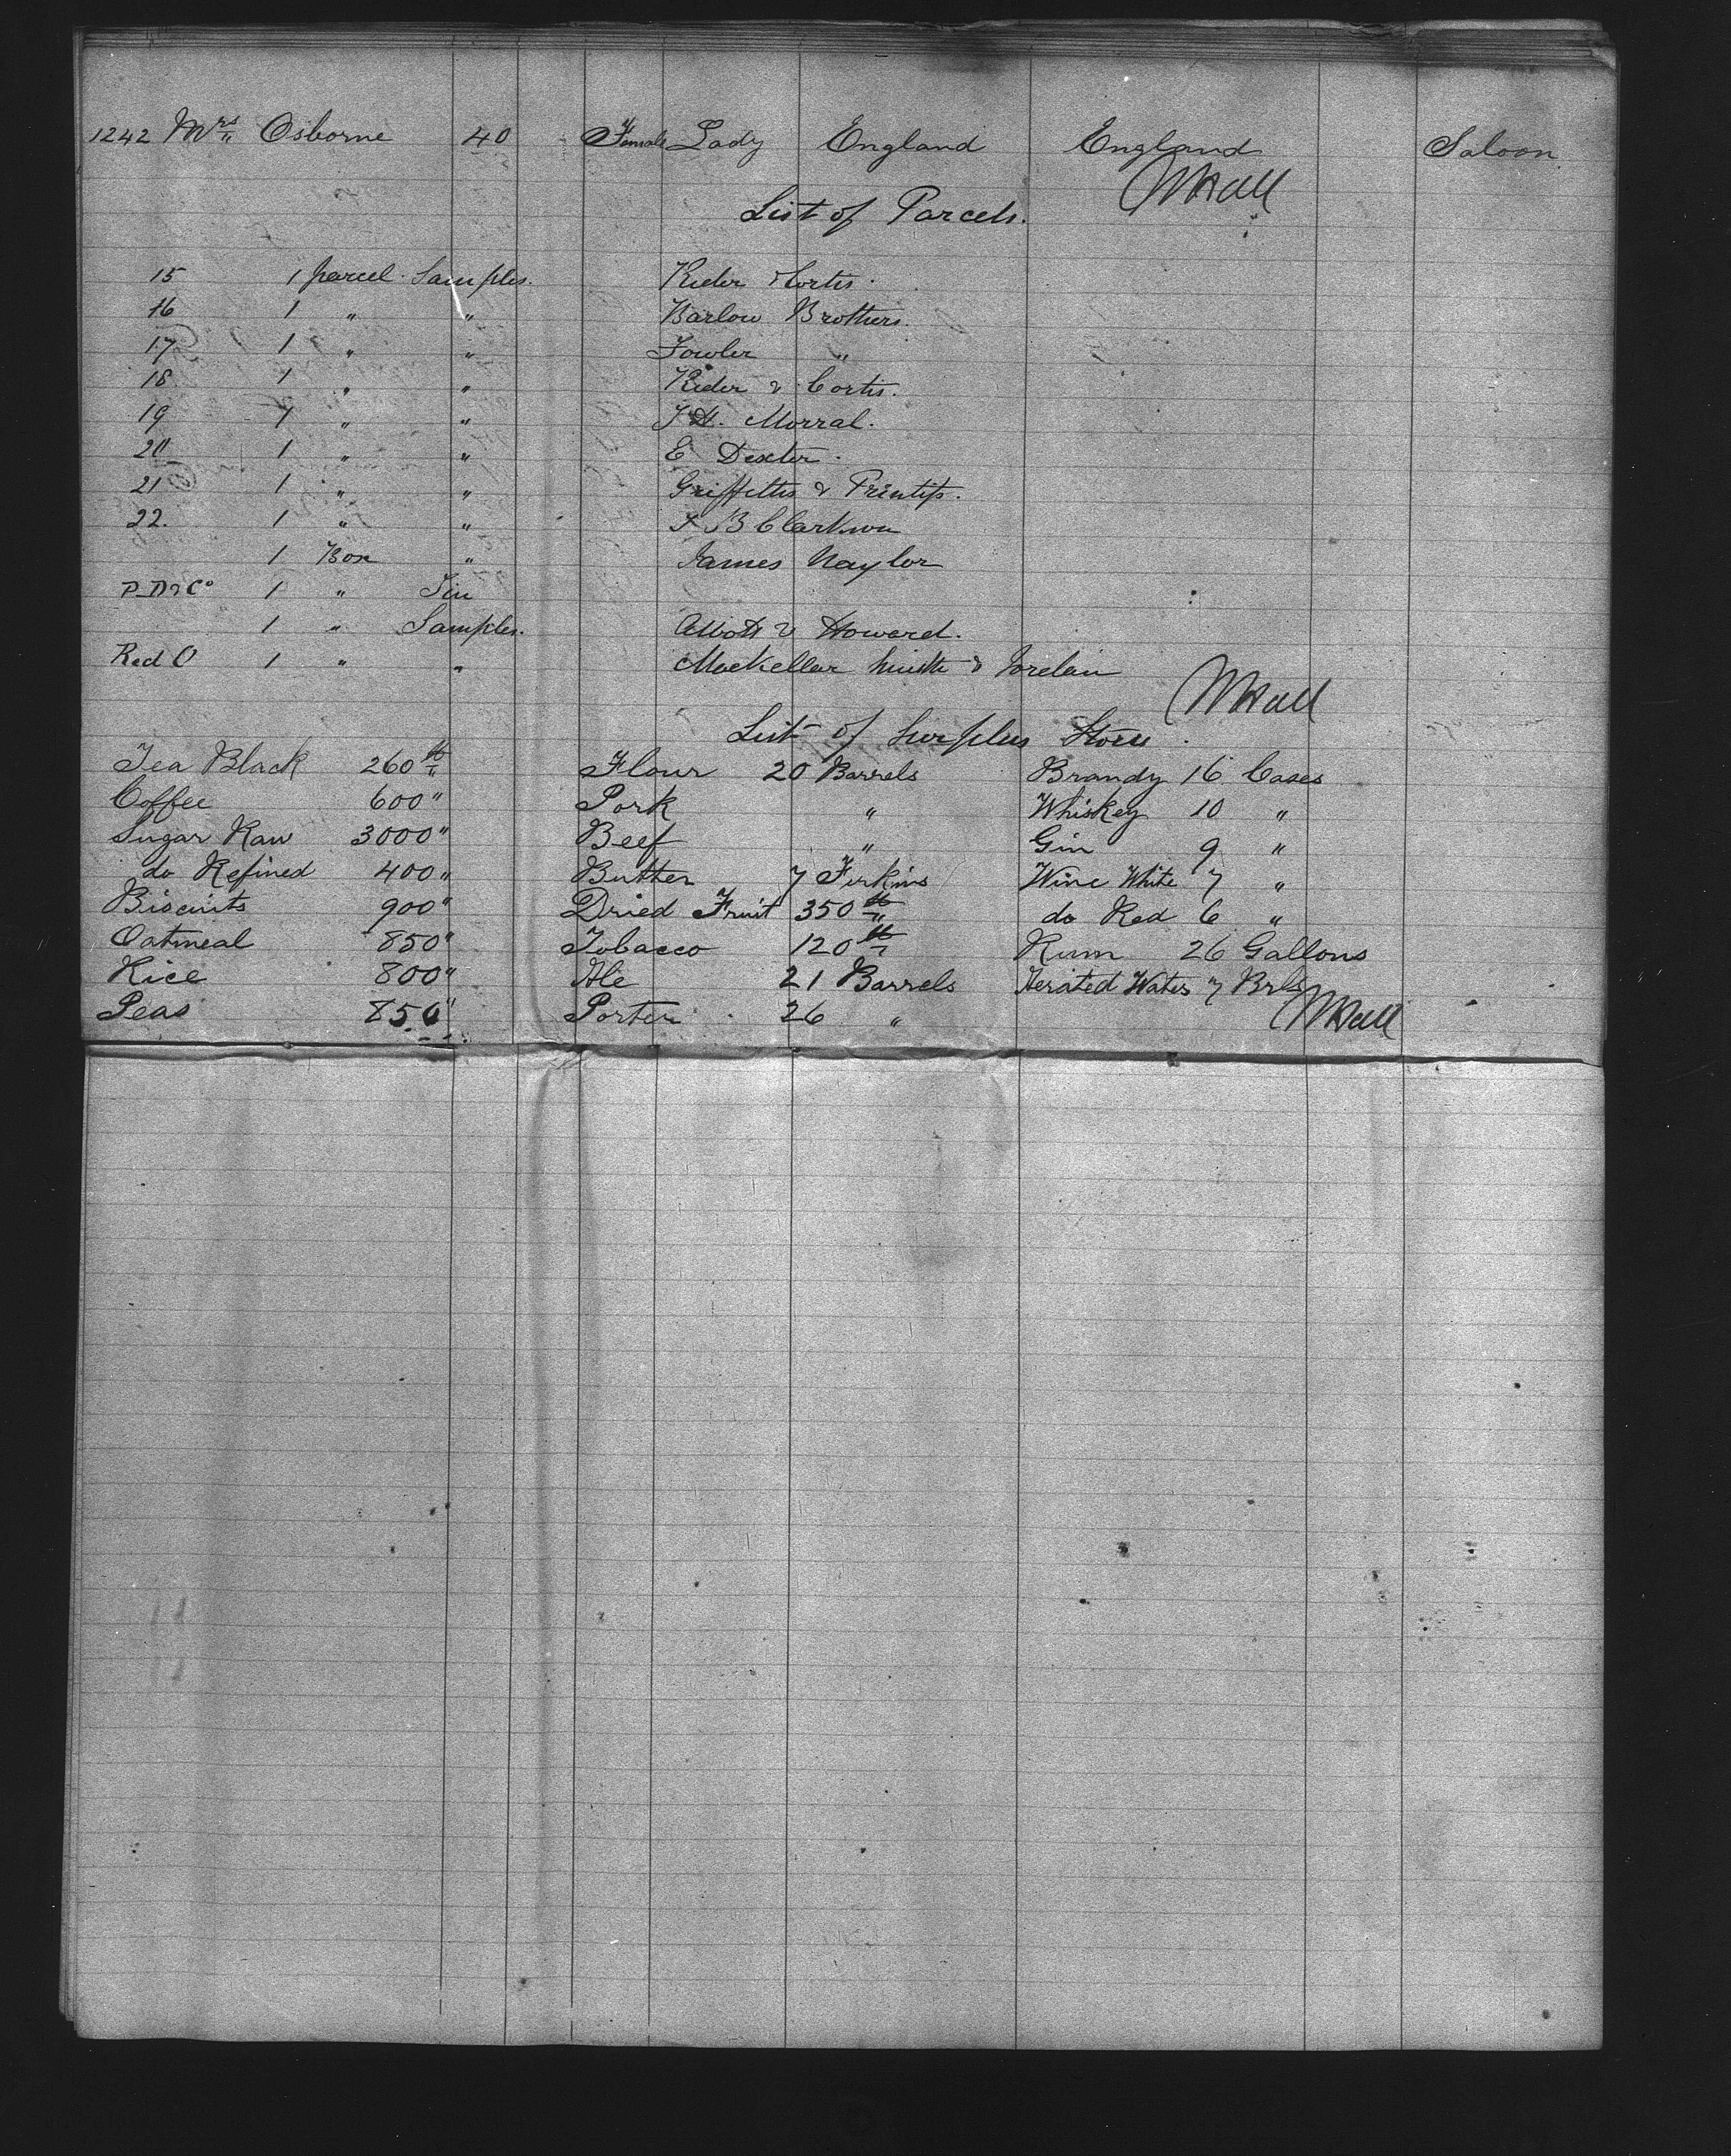 1242 Mrs Osborne 40 Female Lady England England Saloon
WHall
List of Parcels.
15 1 parcel Samples. Rider & Cortis.
16 1 " " Barlow Brothers.
17 1 " " Fowler "
18 1 " " Rider & Cortis.
19 1 " " Morral.
20 1 " " E Dexter.
21 1 " " Griffiths & Prentiss.
22. 1 " " B Clarkson
1 Box " James Naylor
P.D & Co 1 " Tin
1 " Samples. Abbott & Howard.
Red O 1 " " Mackellar Smith & Jordan
WHall
List of Surplus Stores.
Tea Black 260 lb Flour 20 Barrels Brandy 16 Cases
Coffee 600 " Pork " Whiskey 10 "
Sugar Raw 3000 " Beef " Gin 9 "
do Refined 400 " Butter 7 Firkins Wine White 7 "
Biscuits 900 " Dried Fruit 350 lb do Red 6 "
Oatmeal 850 " Tobacco 120 lb Rum 26 Gallons
Rice 800 " Ale 21 Barrels Aerated Water 7 Brls
Peas 850 " Porter 26 " WHall